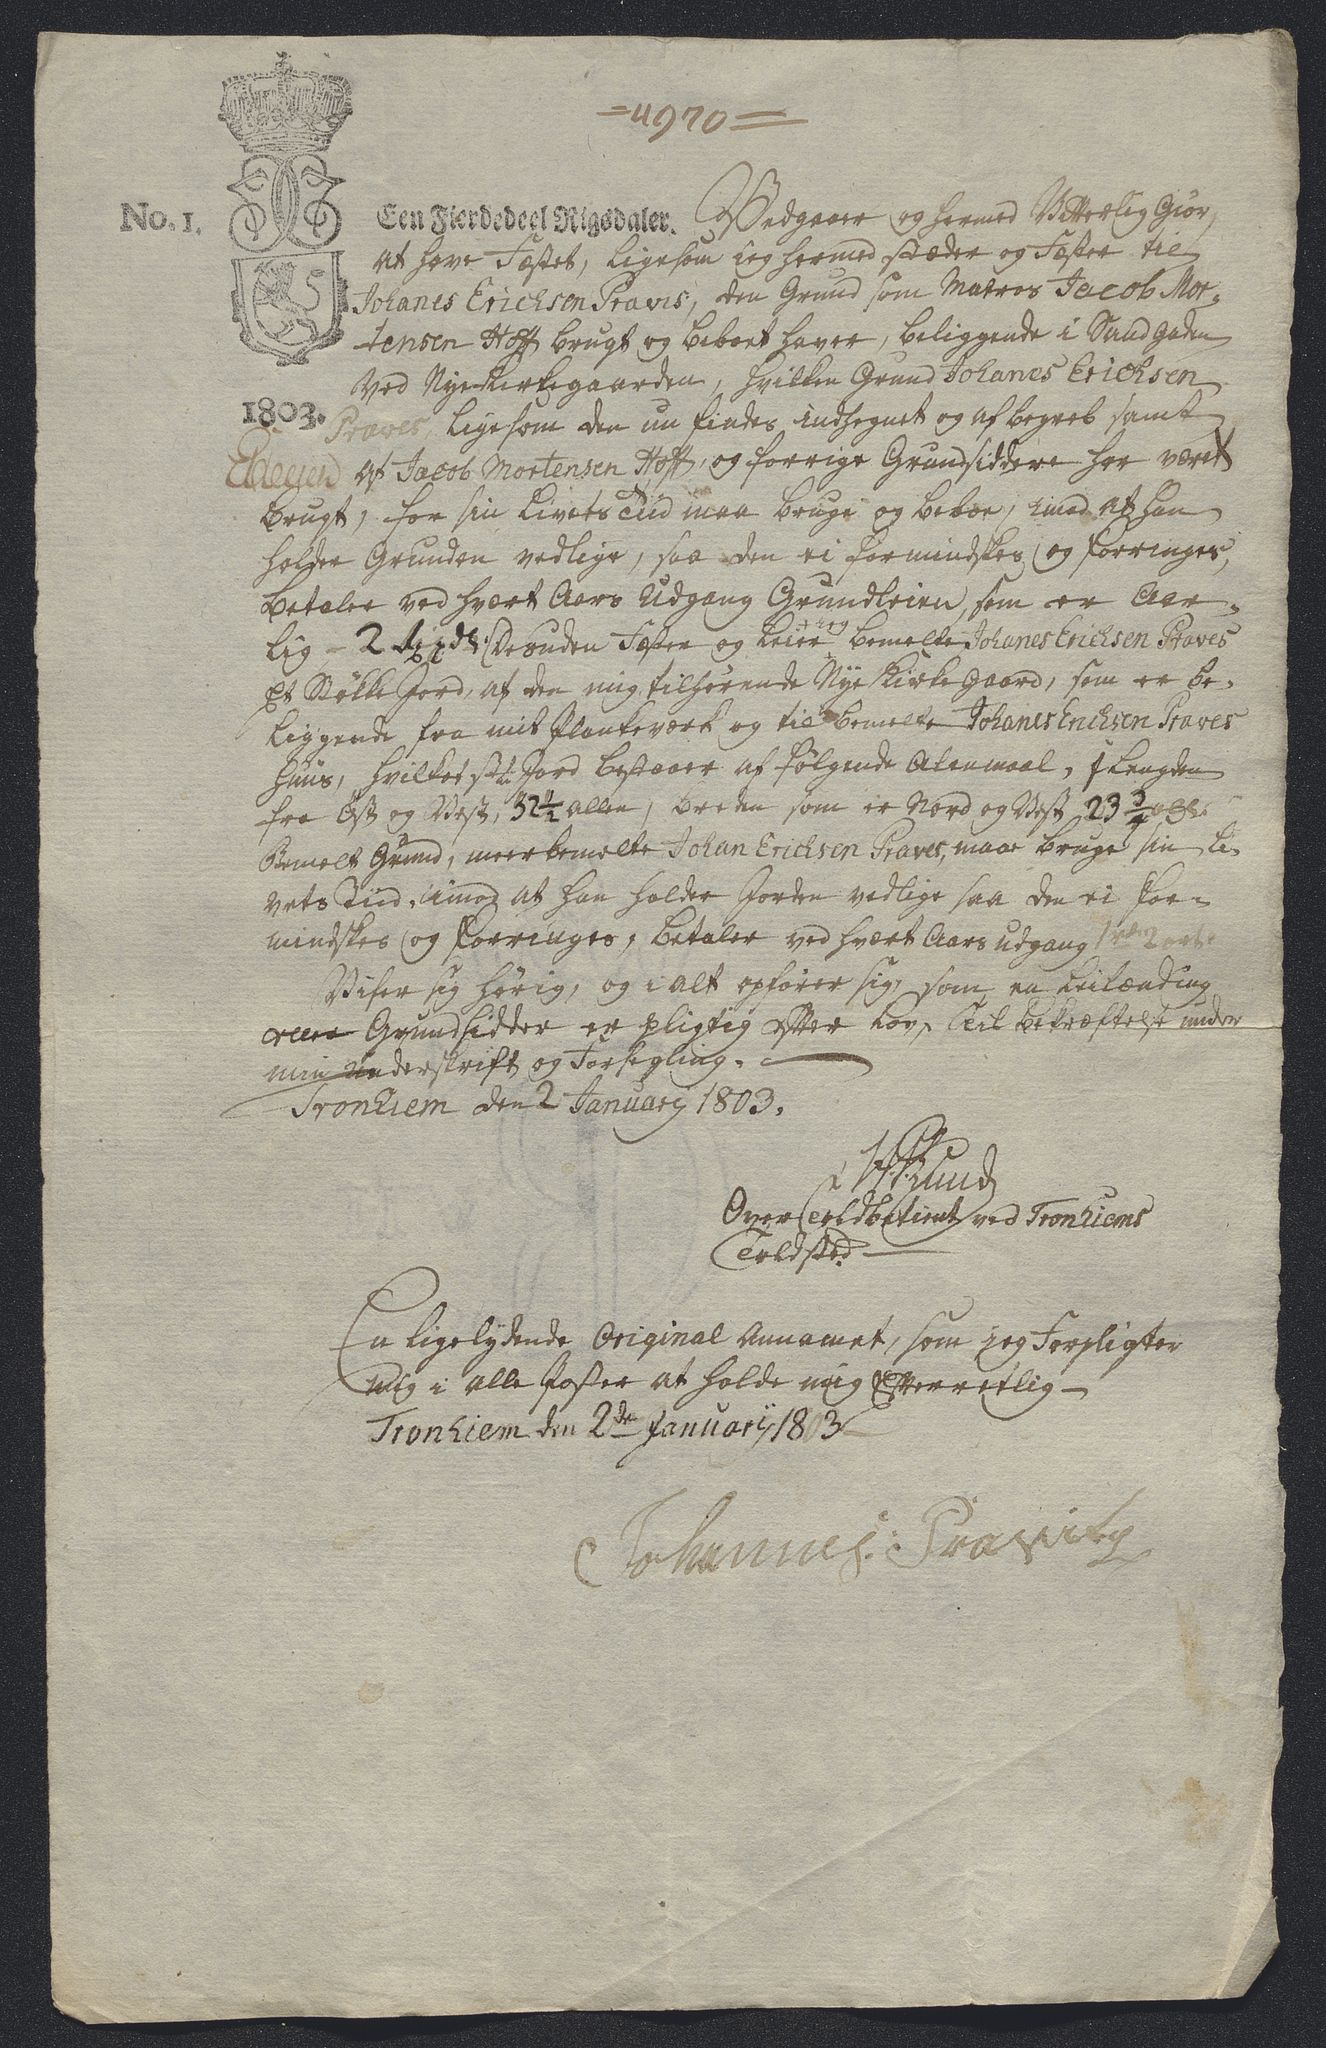 =4970=
No. 1. Een Fierdedeel Rigsdaler. Vedgaaer og hermed Vitterlig Giør,
at have Fæstet, ligesom jeg hermed stæder og Fæster til
Johanes Erichsen Praves, den Grund som Matros Jacob Mor-
tensen Hoff brugt og beboet haver, beliggende i Sandgaden
ved Nyekirkegaarden, hvilken Grund Johanes Erichsen
1803.
Praves, ligesom den nu findes indhegnet og afbegreb samt
af Jacob Mortensen Hoff, og forrige Grundsiddere har været
brugt, for sin Livets Tiid maa bruge og beboe, imod at han
holder Grunden vedlige, saa den ei formindskes og forringes,
betaler ved hvert Aars Udgang Grundleien, som er Aar-
lig 2 Desuden Fæster og Leier jeg bemelte Johanes Erichsen Praves
Et Støkke Jord, af den mig tilhørende Nye Kirke Gaard, som er be-
liggende fra mit Plankeværk og til bemelte Johanes Erichsen Praves
Huus, hvilket St: Jord bestaaer af følgende Alenmaal, i Lengden
fra Øst og Vest, 32 1/2 allen, breden som er Nord og Vest 23 3/4
Bemelt Grund, meerbemelte Johan Erichsen Praves, maae bruge sin Li-
vets Tiid, imod at han holder Jorden vedlige saa den ei for-
mindskes og forringes, betaler ved hvert Aars udgang 1 rd 2 ort
Viser sig hørig, og i alt opfører sig, som en Leilænding
eller Grundsidder er pligtig efter Lov, Til bekræftelse under
min Underskrift og Forsegling.
Tronhiem den 2 January 1803.
Lund
Over Toldbetient ved Tronhiems
Toldsted.
En ligelydende Original Annamet, som jeg Forpligter
mig i alle Poster at holde mig Efterretlig
Tronhiem den 2de January 1803
Johannes: Pravitz